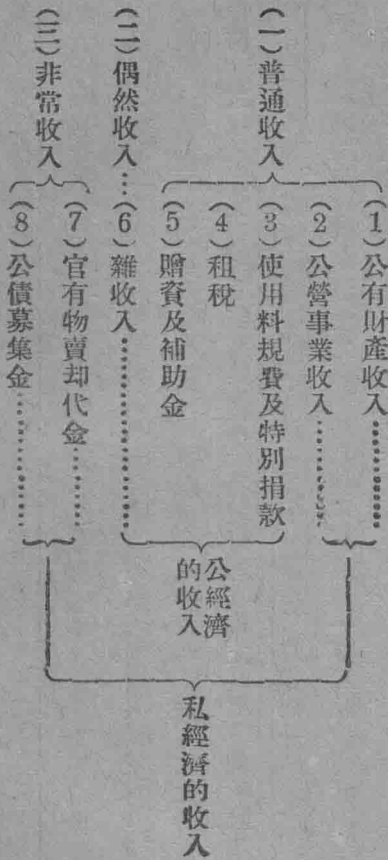 (一)普通收入
(1)公有財產收入…………
(2)公營事業收入…………
(3)使用料規費及特別捐款
(4)租稅
(5)贈資及補助金
(二)偶然收入…(6)雜收入…………
(三)非常收入
(7)官有物賣却代金…………
(8)公債募集金…………
公經濟
的收入
私經濟的收入